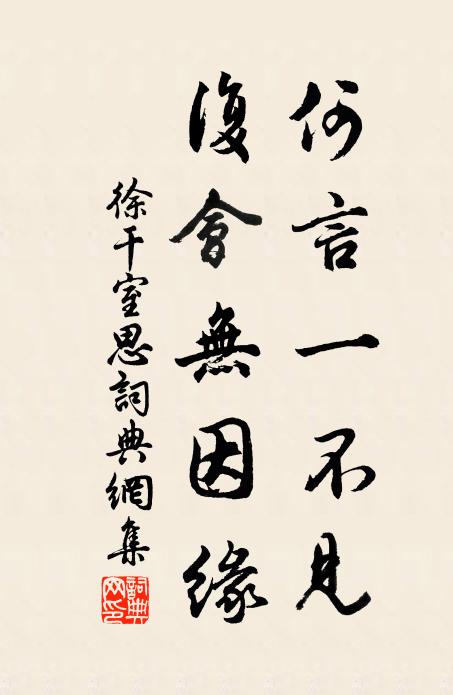 何言一不見
復會無因緣
徐干室思詞典網集
詞典网印